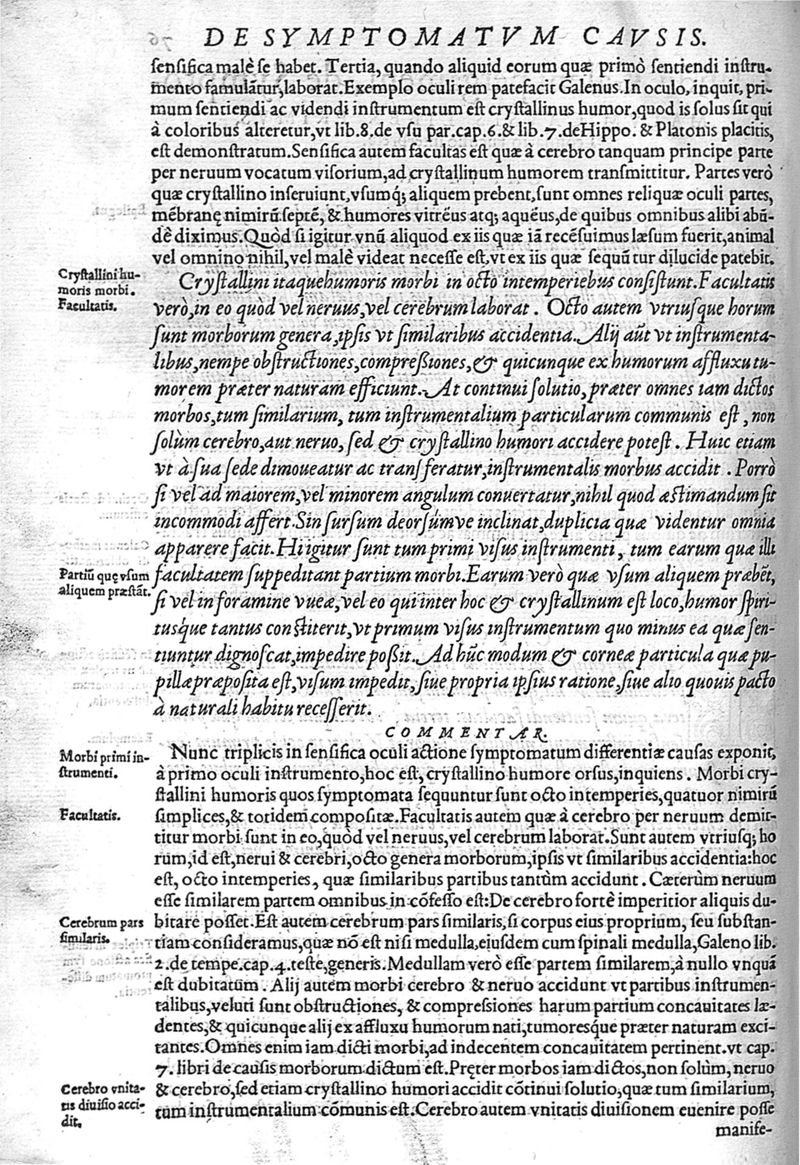 DE SYMPTOMATVM CAVSIS.
sensifica malè se habet. Tertia, quando aliquid eorum quæ primò sentiendi instru-
mento famulãtur, laborat. Exemplo oculi rem patefacit Galenus. In oculo, inquit, pri-
mum sentiendi ac videndi instrumentum est crystallinus humor, quod is solus sit qui
à coloribus alteretur, vt lib. 8. de vsu par. cap. 6. & lib. 7. de Hippo. & Platonis placitis,
est demonstratum. Sensifica autem facultas est quæ à cerebro tanquam principe parte
per neruum vocatum visorium, ad crystallinum humorem transmittitur. Partes verò
quæ crystallino inseruiunt, vsumq; aliquem prębent, sunt omnes reliquæ oculi partes,
mẽbranę nimirũ septẽ, & humores vitrëus atq; aquëus, de quibus omnibus alibi abũ-
dẽ diximus. Quòd si igitur vnũ aliquod ex iis quæ iã recẽsuimus læsum fuerit, animal
vel omnino nihil, vel malè videat necesse est, vt ex iis quæ sequũtur dilucide patebit.
Crystallini hu-
moris morbi.
Facultatis.
Crystallini itaque humoris morbi in octo intemperiebus consistunt. Facultatis
verò, in eo quòd vel neruus, vel cerebrum laborat. Octo autem vtriusque horum
sunt morborum genera, ipsis vt similaribus accidentia. Alij aũt vt instrumenta-
libus, nempe obstructiones, compreßiones, & quicunque ex humorum affluxu tu-
morem præter naturam efficiunt. At continui solutio, præter omnes iam dictos
morbos, tum similarium, tum instrumentalium particularum communis est, non
solùm cerebro, aut neruo, sed & crystallino humori accidere potest. Huic etiam
vt à sua sede dimoueatur ac transferatur, instrumentalis morbus accidit. Porrò
si vel ad maiorem, vel minorem angulum conuertatur, nihil quod æstimandum sit
incommodi affert. Sin sursum deorsúmve inclinat, duplicia quæ videntur omnia
apparere facit. Hi igitur sunt tum primi visus instrumenti, tum earum quæ illi
Partiũ quę vsum
aliquem præstãt.
facultatem suppeditant partium morbi. Earum verò quæ vsum aliquem præbẽt,
si vel in foramine vueæ, vel eo qui inter hoc & crystallinum est loco, humor spiri-
tusq́ue tantus constiterit, vt primum visus instrumentum quo minus ea quæ sen-
tiuntur dignoscat, impedire poßit. Ad hũc modum & corneæ particula quæ pu-
pillæ præposita est, visum impedit, siue propria ipsius ratione, siue alio quouis pacto
à naturali habitu recesserit.
COMMENTAR.
Morbi primi in-
strumenti.
Nunc triplicis in sensifica oculi actione symptomatum differentiæ causas exponit,
à primo oculi instrumento, hoc est, crystallino humore orsus, inquiens. Morbi cry-
stallini humoris quos symptomata sequuntur sunt octo intemperies, quatuor nimirũ
Facultatis.
simplices, & totidem compositæ. Facultatis autem quæ à cerebro per neruum demit-
titur morbi sunt in eo, quòd vel neruus, vel cerebrum laborat. Sunt autem vtriusq; ho
rum, id est, nerui & cerebri, octo genera morborum, ipsis vt similaribus accidentia: hoc
est, octo intemperies, quæ similaribus partibus tantùm accidunt. Cæterùm neruum
esse similarem partem omnibus in cõfesso est: De cerebro fortè imperitior aliquis du-
Cerebrum pars
similaris.
bitare posset. Est autem cerebrum pars similaris, si corpus eius proprium, seu substan-
tiam consideramus, quæ nõ est nisi medulla, eiusdem cum spinali medulla, Galeno lib.
2. de tempe. cap. 4. teste, generis. Medullam verò esse partem similarem, à nullo vnquã
est dubitatum. Alij autem morbi cerebro & neruo accidunt vt partibus instrumen-
talibus, veluti sunt obstructiones, & compressiones harum partium concauitates læ-
dentes, & quicunque alij ex affluxu humorum nati, tumoresq́ue præter naturam exci-
tantes. Omnes enim iam dicti morbi, ad indecentem concauitatem pertinent. vt cap.
7. libri de causis morborum dictum est. Pręter morbos iam dictos, non solùm, neruo
Cerebro vnita-
tis diuisio acci-
dit.
& cerebro, sed etiam crystallino humori accidit cõtinui solutio, quæ tum similarium,
tum instrumentalium cõmunis est. Cerebro autem vnitatis diuisionem euenire posse
manife-